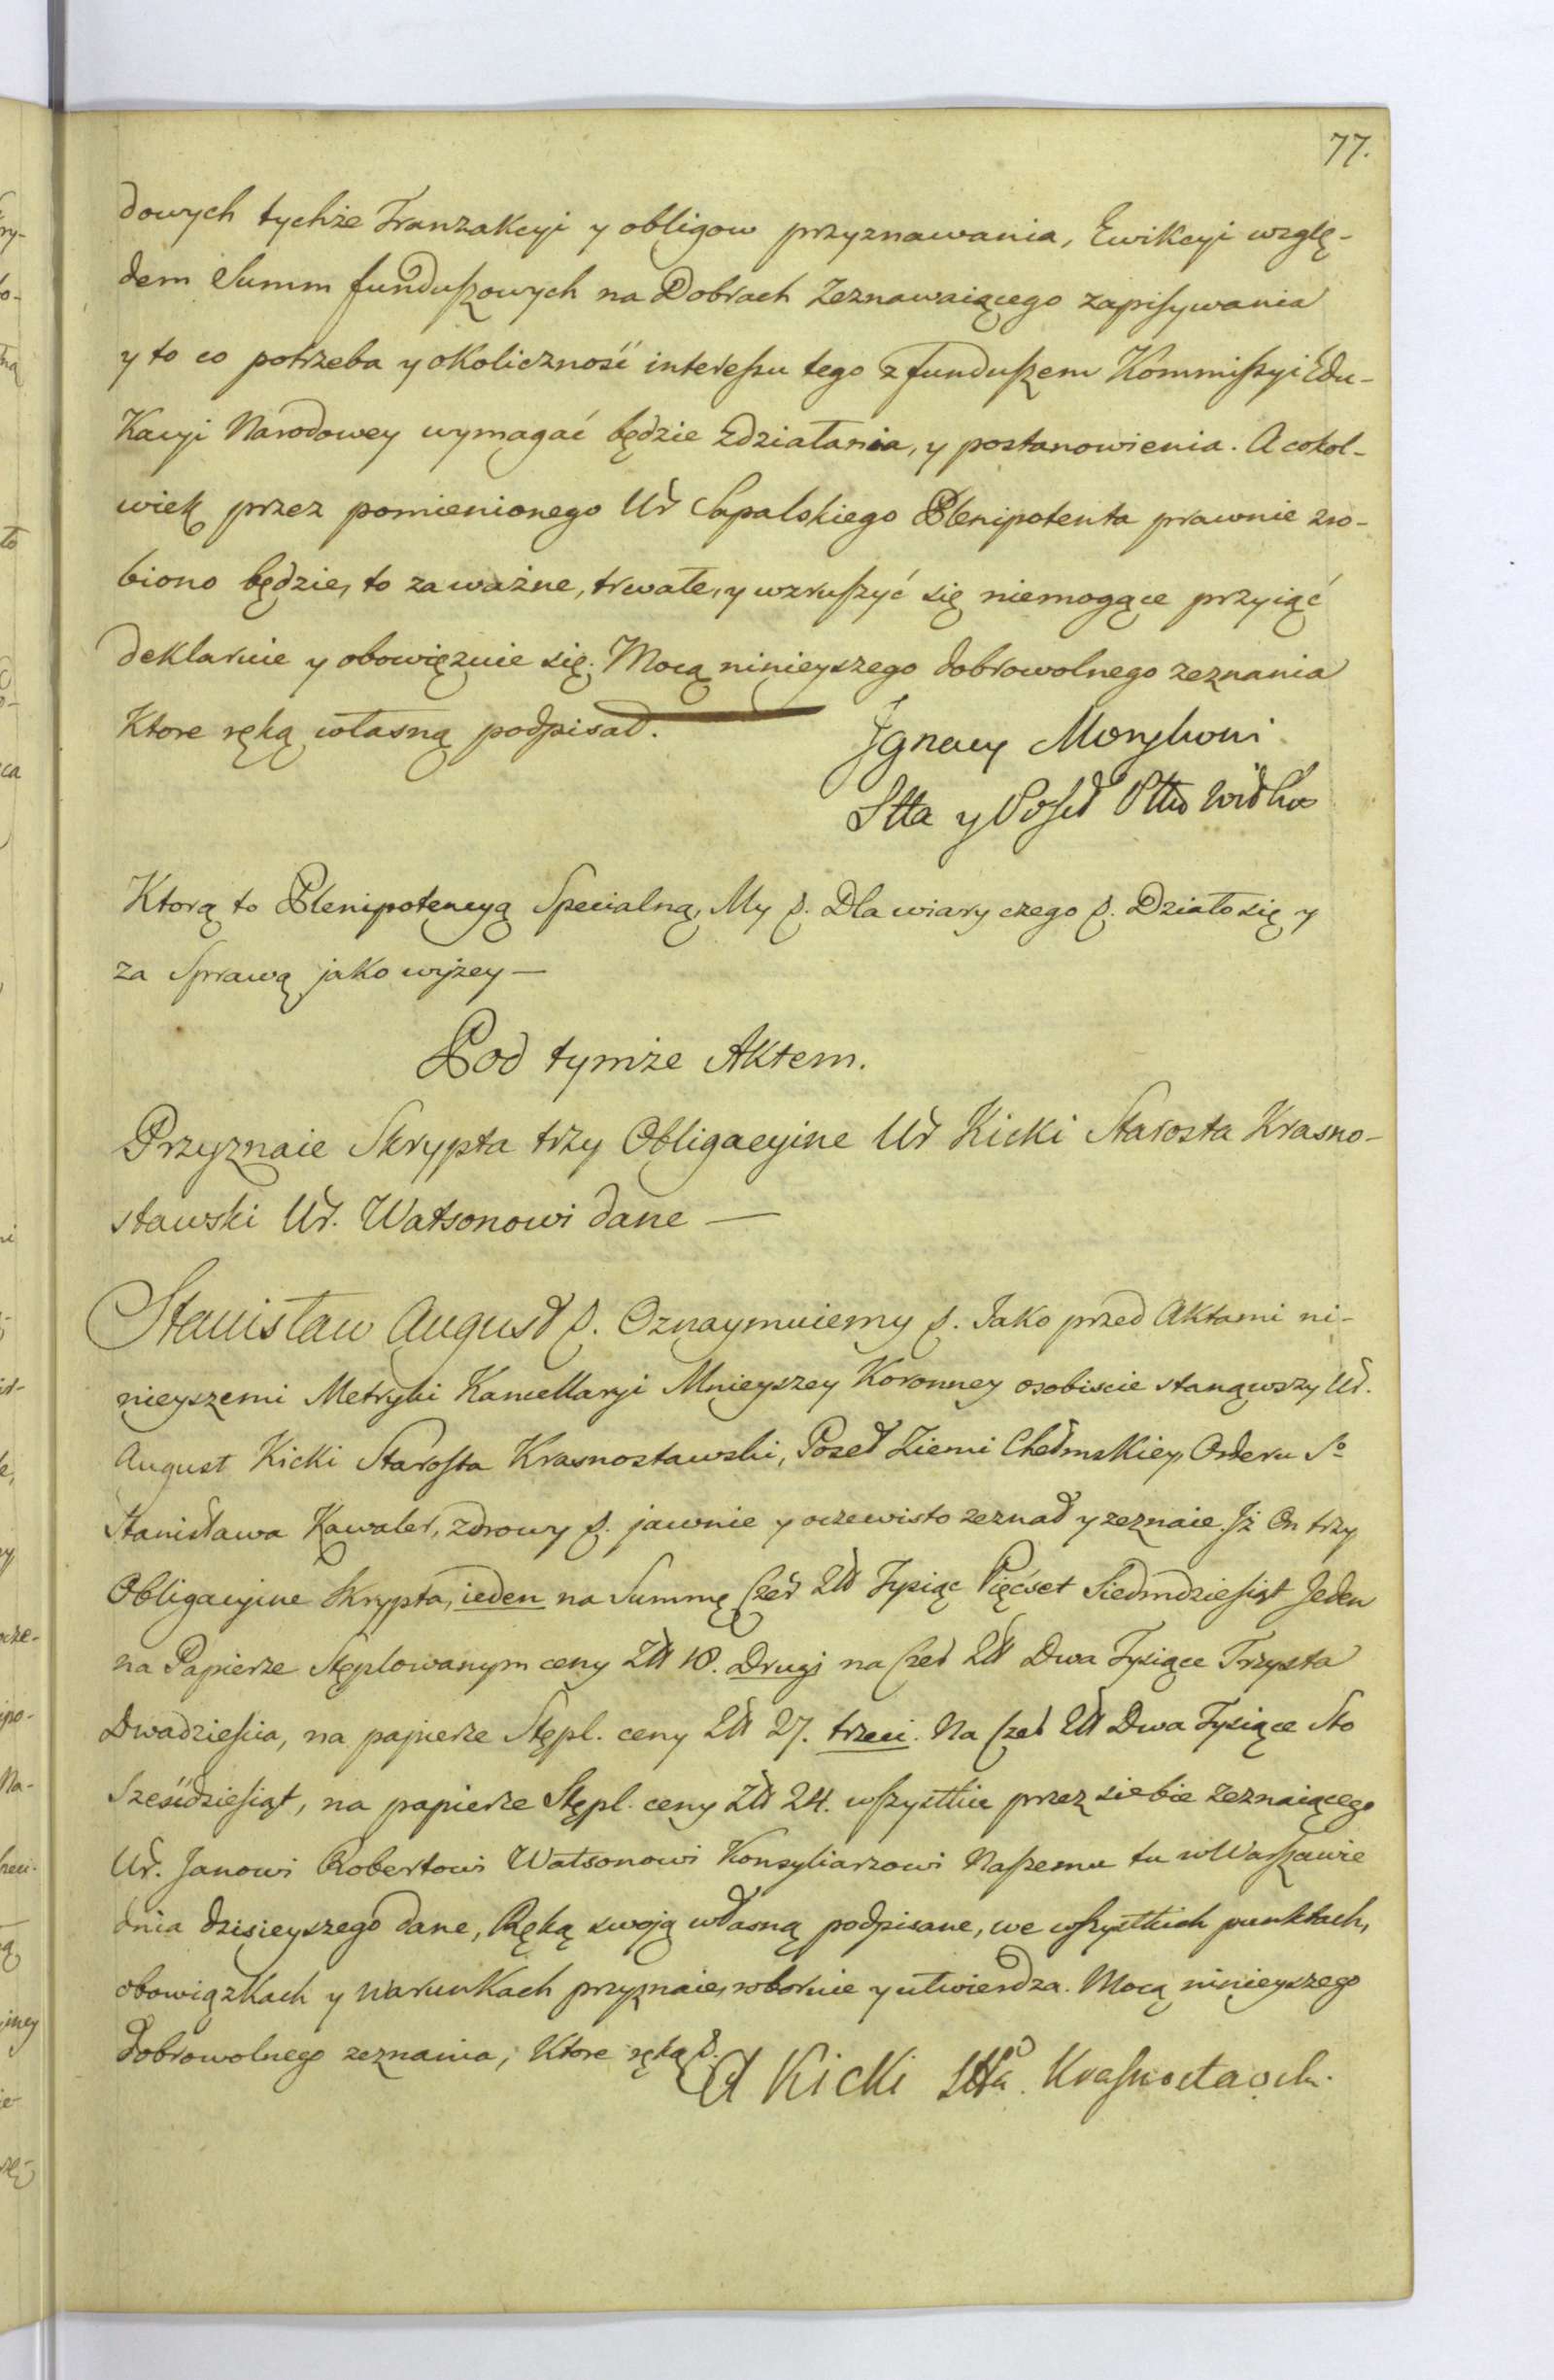 77.
dowych tychże Tranzakcyi y obligow przyznawania, Ewikcyi wzglę-
dem Summ funduszowych na Dobrach Zeznawaiącego zapisywania
y to co potrzeba y okoliczność interessu tego z funduszem Kommissyi Edu-
kacyi Narodowey wymagać będzie zdziałania, y postanowienia. A cokol-
wiek przez pomienionego Ur Sapalskiego Plenipotenta prawnie zro-
biono będzie, to za ważne, trwałe, y wzruszyć się niemogące przyiąć
deklaruie y obowięzuie się. Mocą ninieyszego dobrowolnego zeznania
Ktore ręką własną podpisał.
Ignacy
Stta y Poseł Pttu
Ktorą to Plenipotencyą Specialną, My p. Dla wiary czego p. Działo się y
za Sprawą jako wyżey —
Pod tymże Aktem.
Przyznaie Skrypta trzy Obligacyine Ur Kicki Starosta Krasno-
stawski Ur. Watsonowi dane —
Stanisław August p. Oznaymuiemy p. Jako przed Aktami ni-
nieyszemi Metryki Kancellaryi Mnieyszey Koronney osobiscie stanąwszy Ur.
August Kicki Starosta Krasnostawski, Poseł Ziemi Chełmskiey, Orderu So
Stanisława Kawaler, zdrowy p. jawnie y oczewisto zeznał y zeznaie. Iż On trzy
Obligacyine Skrypta, ieden na Summę Czer Złł Tysiąc Pięćset Siedmdziesiąt Jeden
na Papierze Stęplowanym ceny Złł 18. Drugi na Czer Złł Dwa Tysiące Trzysta
Dwadzieścia, na papierze Stępl. ceny Złł 27. trzeci. Na Czer Złł Dwa Tysiące Sto
Sześćdziesiąt, na papierze Stępl. ceny Złł 24. wszystkie przez siebie zeznaiącego
Ur. Janowi Robertowi Watsonowi Konsyliarzowi Naszemu tu w Warszawie
dnia dzisieyszego dane, Ręką swoją własną podpisane, we wszystkich punktach,
obowiązkach y warunkach przyznaie, roboruie y utwierdza. Mocą ninieyszego
dobrowolnego zeznania, Ktore ręką p.
A Kicki Stta. Krasnostawsk.